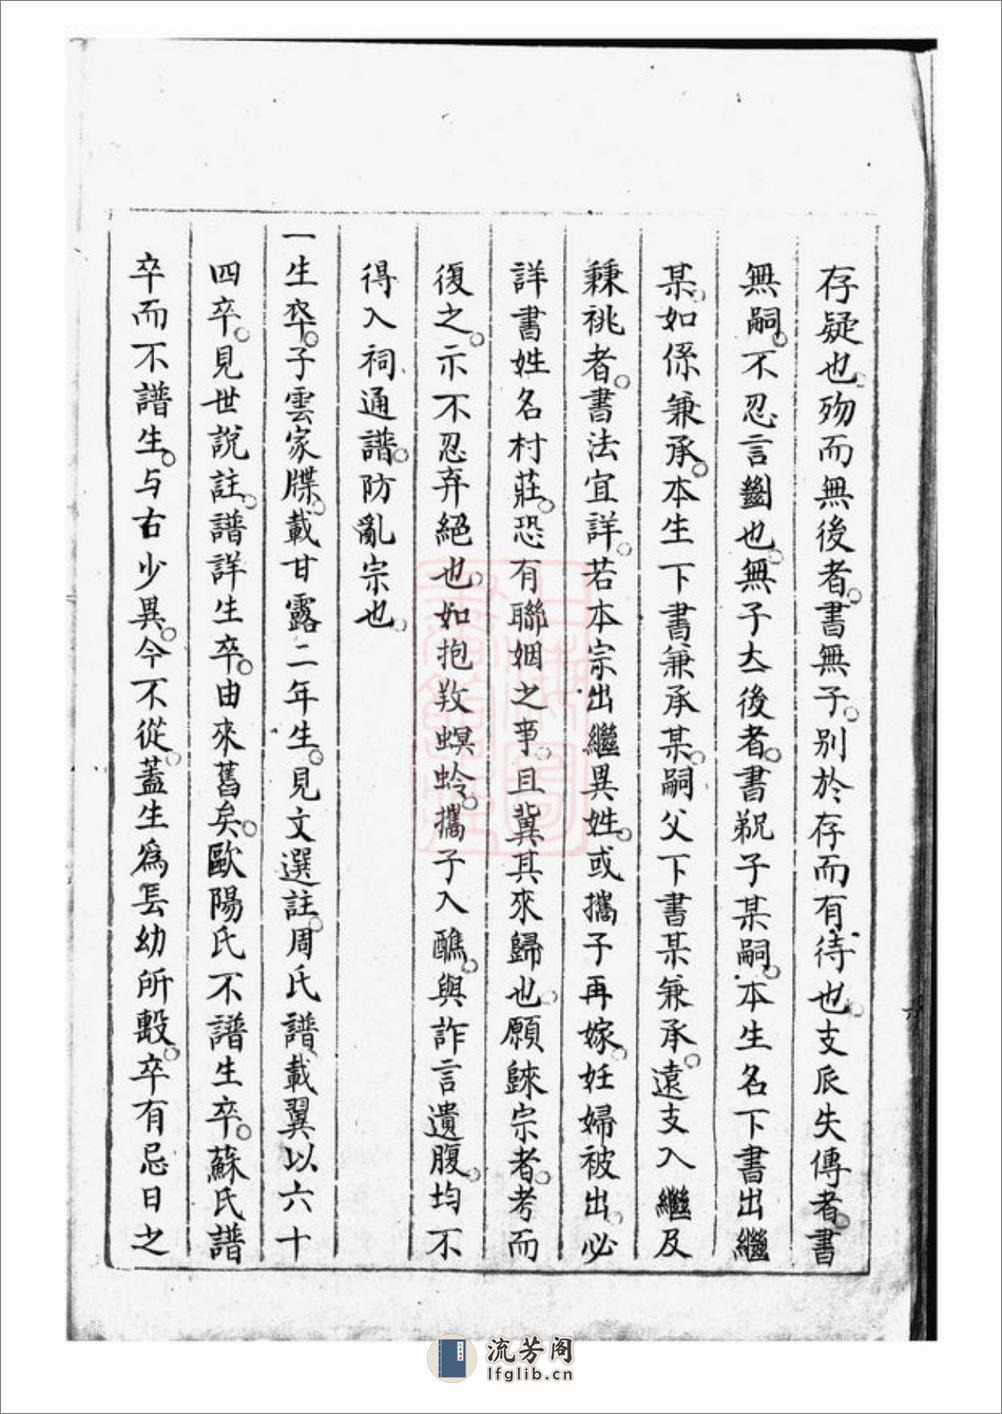 存疑也歿而無後者書無子别於存而有待也支𠂢失傳者書
無嗣不忍言㡭也無子立後者書觌子某嗣本生名下書出繼
某如係兼承本生下書兼承某嗣父下書某兼承遠支入繼及
兼祧者書法宜詳若本宗出繼異姓或攜子再嫁妊婦被出必
詳書姓名村莊恐有聯姻之事且冀其來歸也願歸宗者考而
復之示不忍弃絕也如抱敉螟蛉攜子入醮與詐言遺腹均不
得入祠通譜防亂宗也
一生卒子雲家牒載甘露二年生見文選註周氏譜載翼以六十
四卒見世說註譜詳生卒由來舊矣歐陽氏不譜生卒蘇氏譜
卒而不譜生与古少異今不從蓋生爲長幼所繫卒有忌日之
流芳阁
lfglib.cn